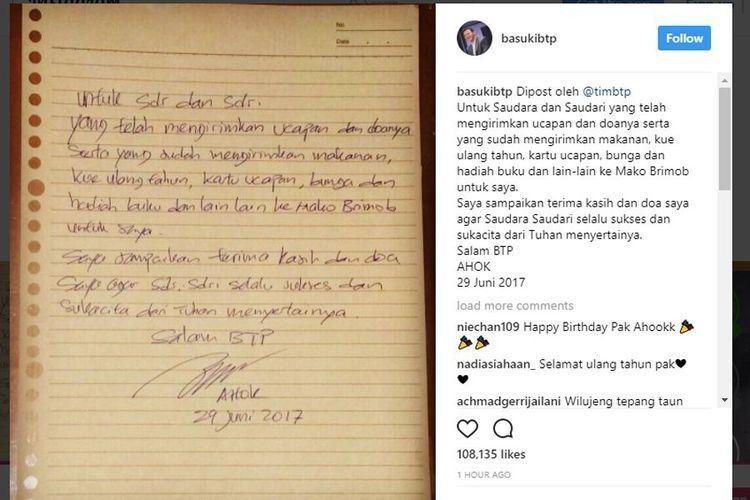 No:
Date:
untuk sdr dan sdri.
yang telah mengirimkan ucapan dan doanya
serta yang sudah mengirimkan makanan,
kue ulang tahun, kartu ucapan, bunga dan
hadiah buku dan lain lain ke Mako Brimob
untuk saya.
Saya sampaikan terima kasih dan doa
saya agar sdr. sdri selalu sukses dan
sukacita dari Tuhan menyertainya.
Salam BTP
AHOK
29 Juni 2017
basukibtp
Follow
basukibtp Dipost oleh @timbtp
Untuk Saudara dan Saudari yang telah
mengirimkan ucapan dan doanya serta
yang sudah mengirimkan makanan, kue
ulang tahun, kartu ucapan, bunga dan
hadiah buku dan lain-lain ke Mako Brimob
untuk saya.
Saya sampaikan terima kasih dan doa saya
agar Saudara Saudari selalu sukses dan
sukacita dari Tuhan menyertainya.
Salam BTP
AHOK
29 Juni 2017
load more comments
niechan109 Happy Birthday Pak Ahookk
nadiasiahaan_ Selamat ulang tahun pak
achmadgerrijailani Wilujeng tepang taun
108,135 likes
1 HOUR AGO